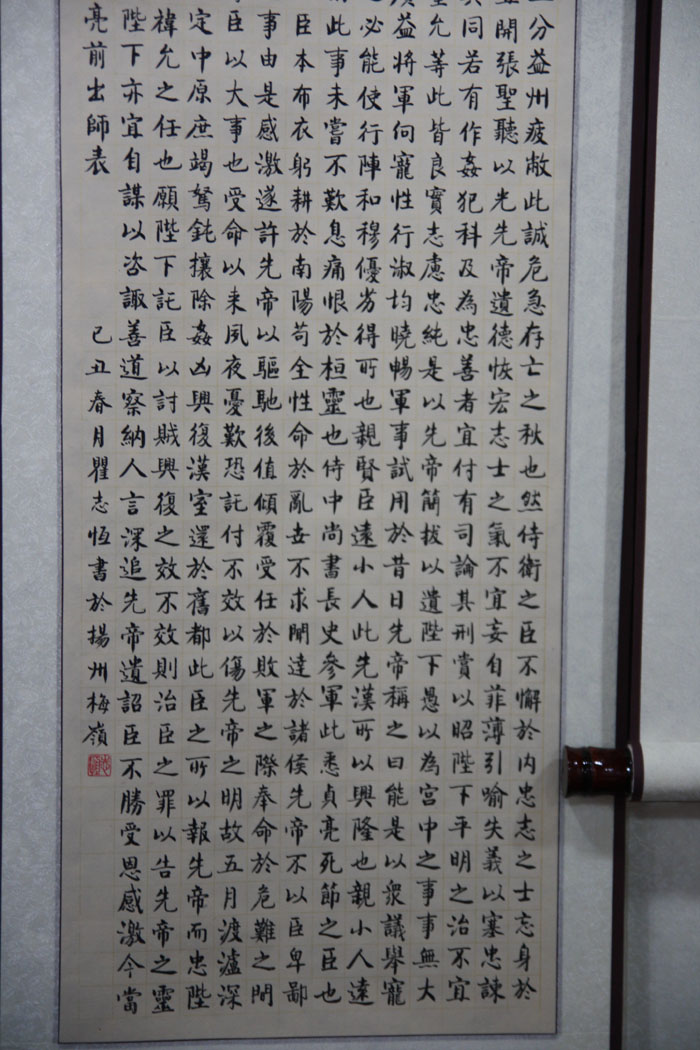 分益州疲敝此誠危急存亡之秋也然侍衛之臣不懈於內忠志之士忘身於
開張聖聽以光先帝遺德恢宏志士之氣不宜妄自菲薄引喻失義以塞忠諫
同若有作姦犯科及為忠善者宜付有司論其刑賞以昭陛下平明之治不宜
允等此皆良實志慮忠純是以先帝簡拔以遺陛下愚以為宮中之事事無大
益將軍向寵性行淑均曉暢軍事試用於昔日先帝稱之曰能是以眾議舉寵
必能使行陣和穆優劣得所也親賢臣遠小人此先漢所以興隆也親小人遠
此事未嘗不歎息痛恨於桓靈也侍中尚書長史參軍此悉貞亮死節之臣也
臣本布衣躬耕於南陽苟全性命於亂世不求聞達於諸侯先帝不以臣卑鄙
事由是感激遂許先帝以驅馳後值傾覆受任於敗軍之際奉命於危難之間
臣以大事也受命以來夙夜憂歎恐託付不效以傷先帝之明故五月渡瀘深
定中原庶竭駑鈍攘除姦凶興復漢室還於舊都此臣之所以報先帝而忠陛
褘允之任也願陛下託臣以討賊興復之效不效則治臣之罪以告先帝之靈
陛下亦宜自謀以咨諏善道察納人言深追先帝遺詔臣不勝受恩感激今當
亮前出師表 己丑春月瞿志恆書於揚州梅嶺